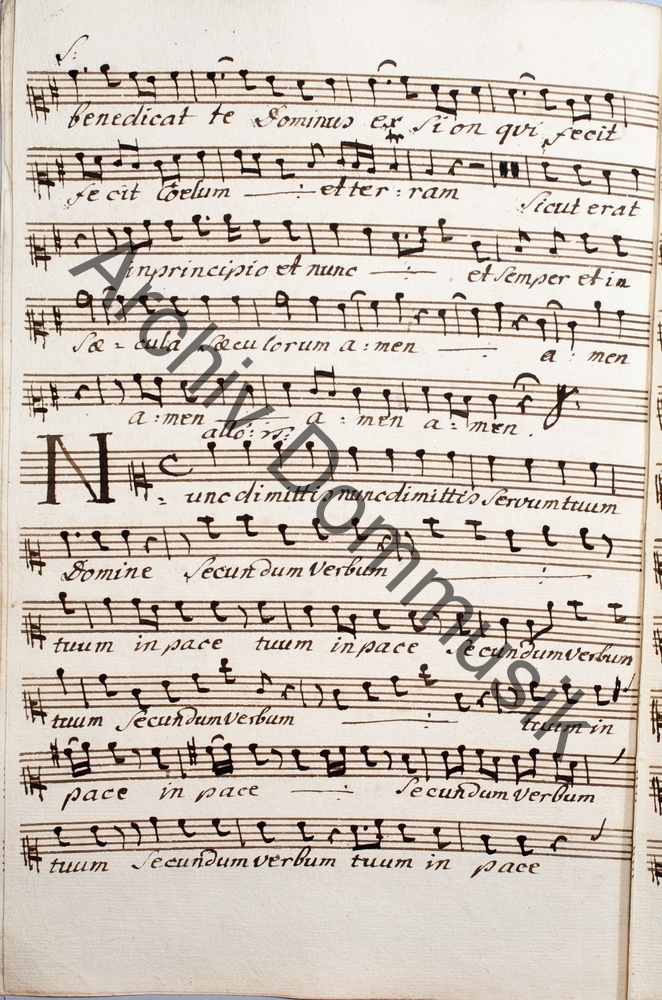 S:
benedicat te Dominus ex Sion qui fecit
fecit Coelum et ter: ram Sicut erat
in principio et nunc et semper et in
Sæ - cula Sæculorum a: men a: men
a: men a: men a: men.
allo:
Nunc dimittis nunc dimittis servum tuum
Domine secundum verbum
tuum in pace tuum in pace Secundum verbum
tuum secundum verbum tuum in
pace in pace secundum verbum
tuum secundum verbum tuum in pace
Archiv Dommusik